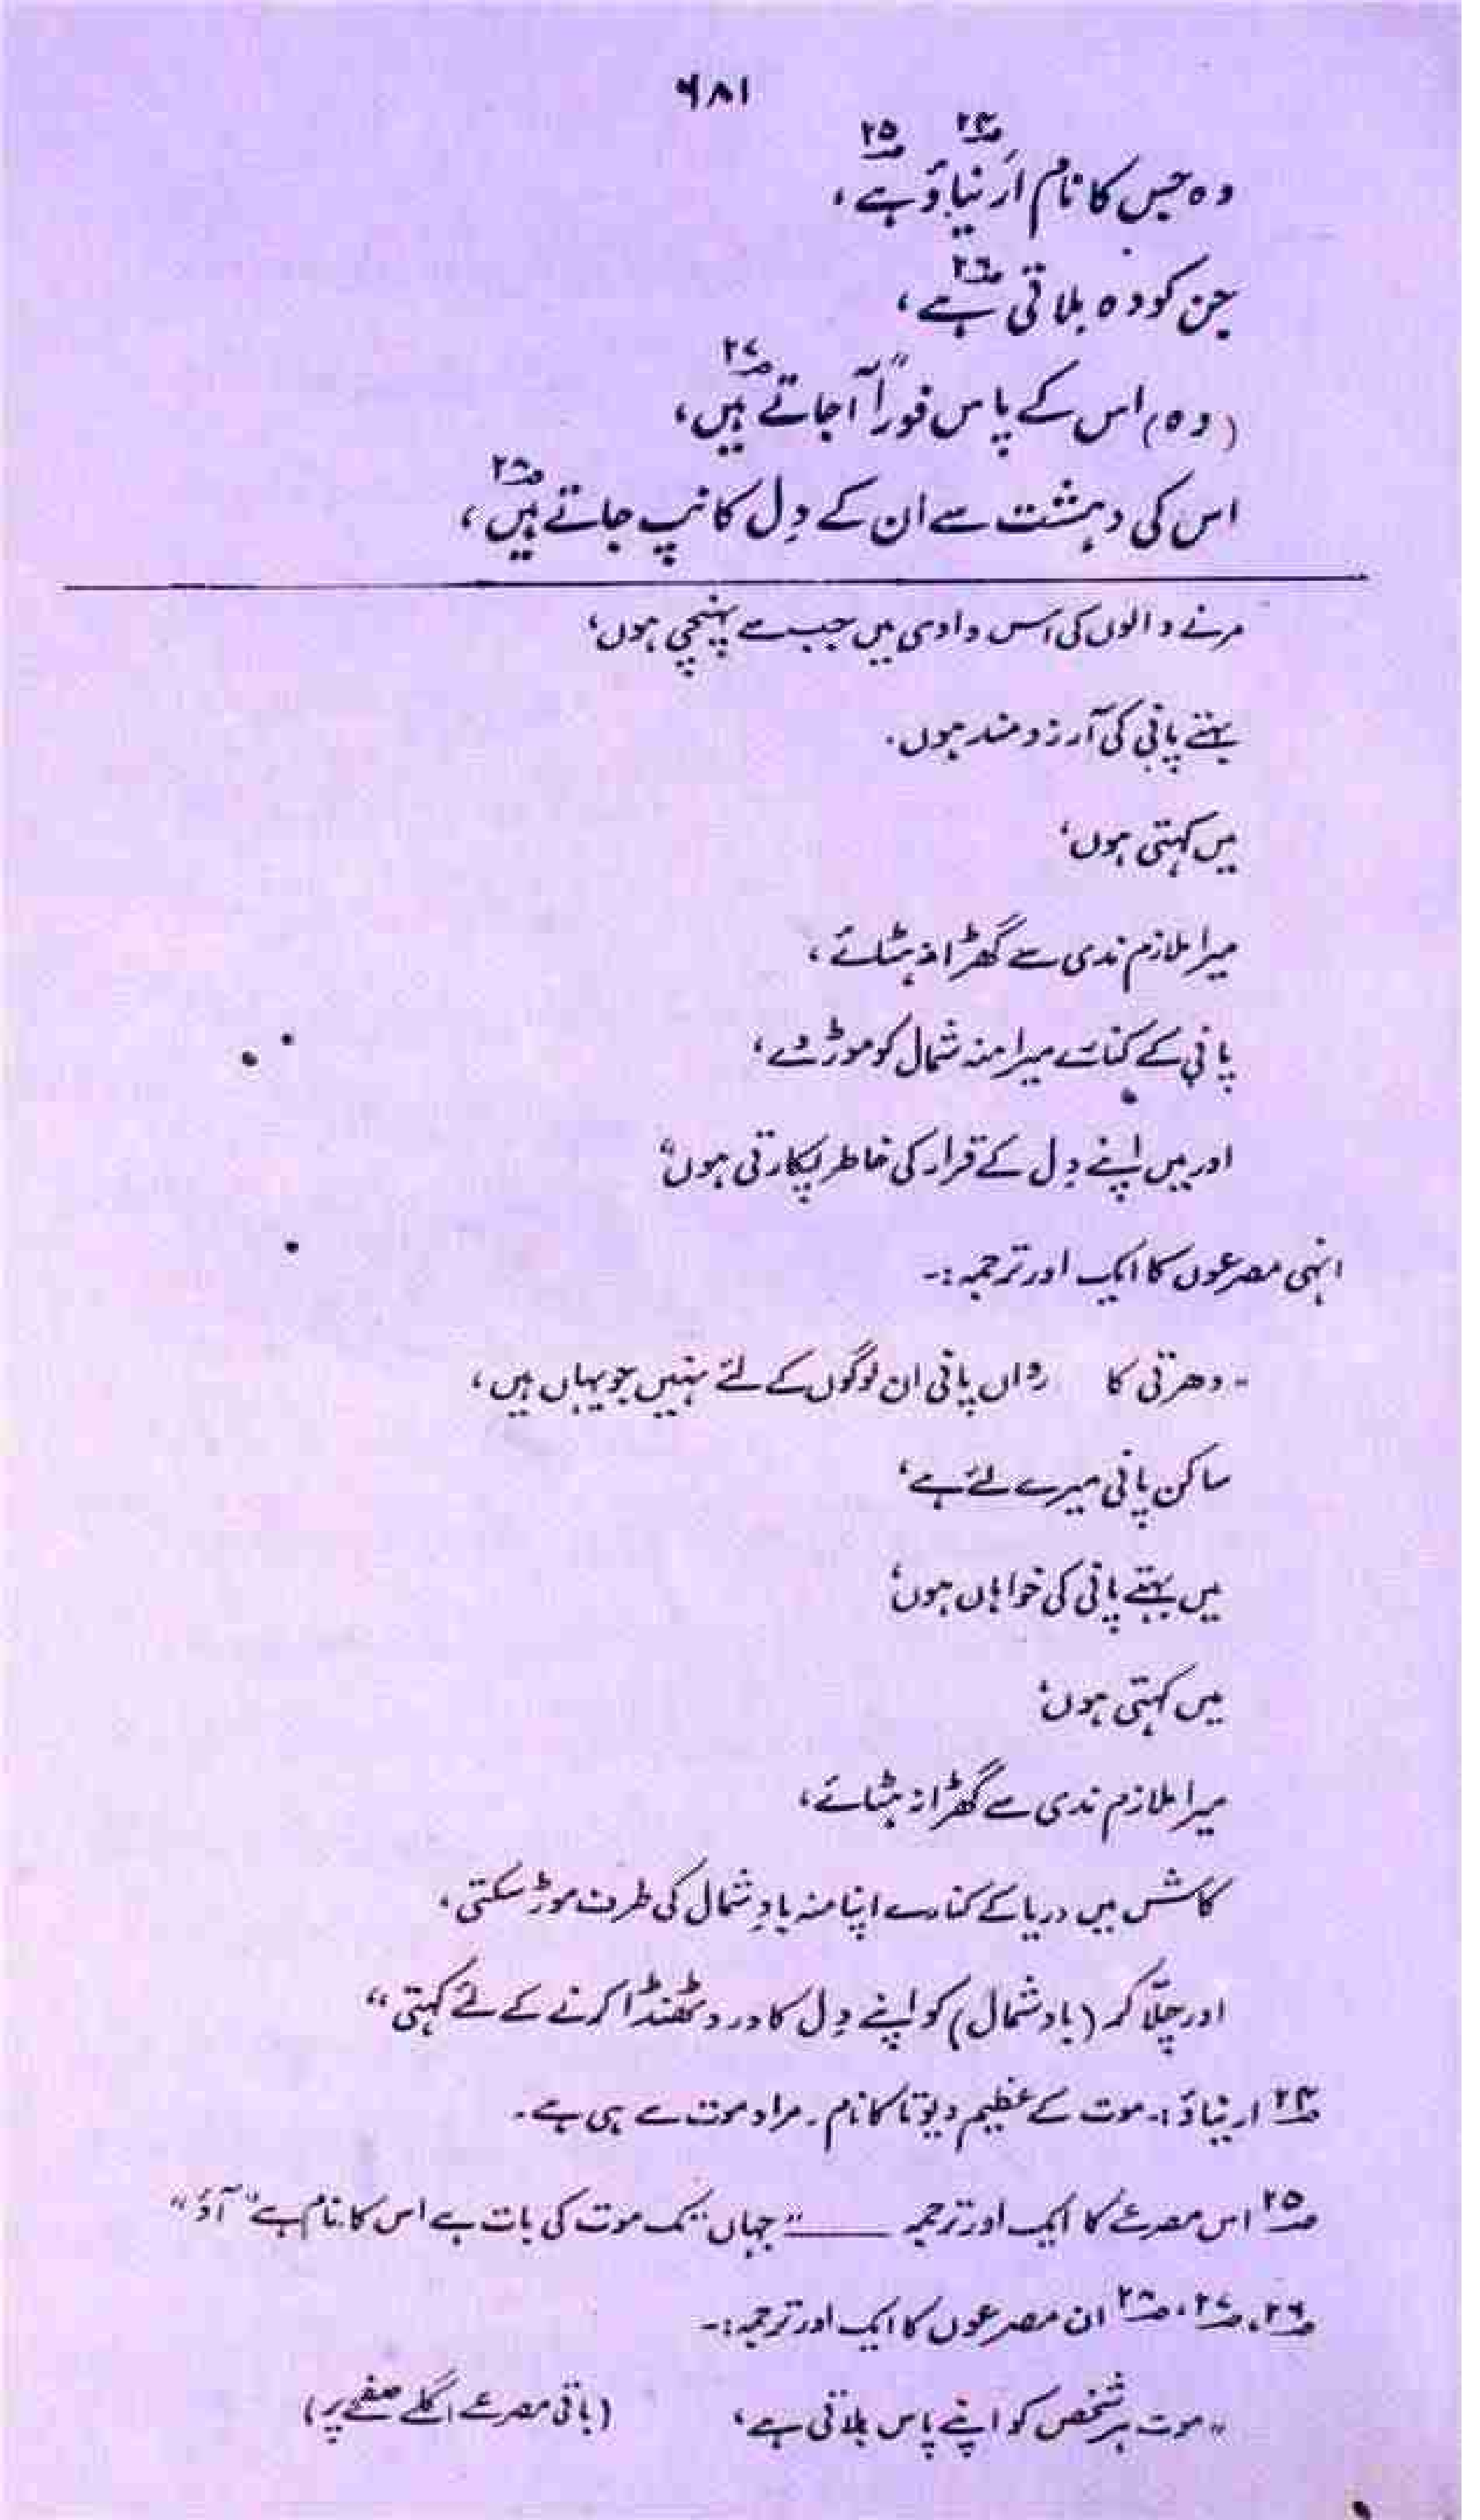 ۶۸۱
وہ جس کا نام اَرنیاؤ۲۴ ہے۲۵،
جن کو وہ بلاتی ہے۲۶،
(وہ) اس کے پاس فوراً آجاتے ہیں۲۷،
اس کی دہشت سے ان کے دِل کانپ جاتے ہیں۲۸،
مرنے والوں کی اس وادی میں جب سے پہنچی ہوں،
بہتے پانی کی آرزومند ہوں.
میں کہتی ہوں،
میرا ملازم ندی سے گھڑا نہ ہٹائے،
پانی کے کنارے میرا منہ شمال کو موڑ دے،
اور میں اپنے دِل کے قرار کی خاطر پکارتی ہوں"
انہی مصرعوں کا ایک اور ترجمہ :۔
۔ دھرتی کا رواں پانی ان لوگوں کے لئے نہیں جو یہاں ہیں،
ساکن پانی میرے لئے ہے،
میں بہتے پانی کی خواہاں ہوں،
میں کہتی ہوں،
میرا ملازم ندی سے گھڑا نہ ہٹائے،
کاش میں دریا کے کنارے اپنا منہ بادِ شمال کی طرف موڑ سکتی،
اور چلّا کر (باد شمال) کو اپنے دِل کا درد ٹھنڈا کرنے کے لئے کہتی"
۲۴؎ ارنیاؤ :۔ موت کے عظیم دیوتا کا نام۔ مراد موت سے ہی ہے۔
۲۵؎ اس مصرعے کا ایک اور ترجمہ ——— "جہاں تک موت کی بات ہے اس کا نام ہے "آؤ"
۲۶؎، ۲۷؎، ۲۸؎ ان مصرعوں کا ایک اور ترجمہ :۔
"موت ہر شخص کو اپنے پاس بلاتی ہے، (باقی مصرعے اگلے صفحے پر)